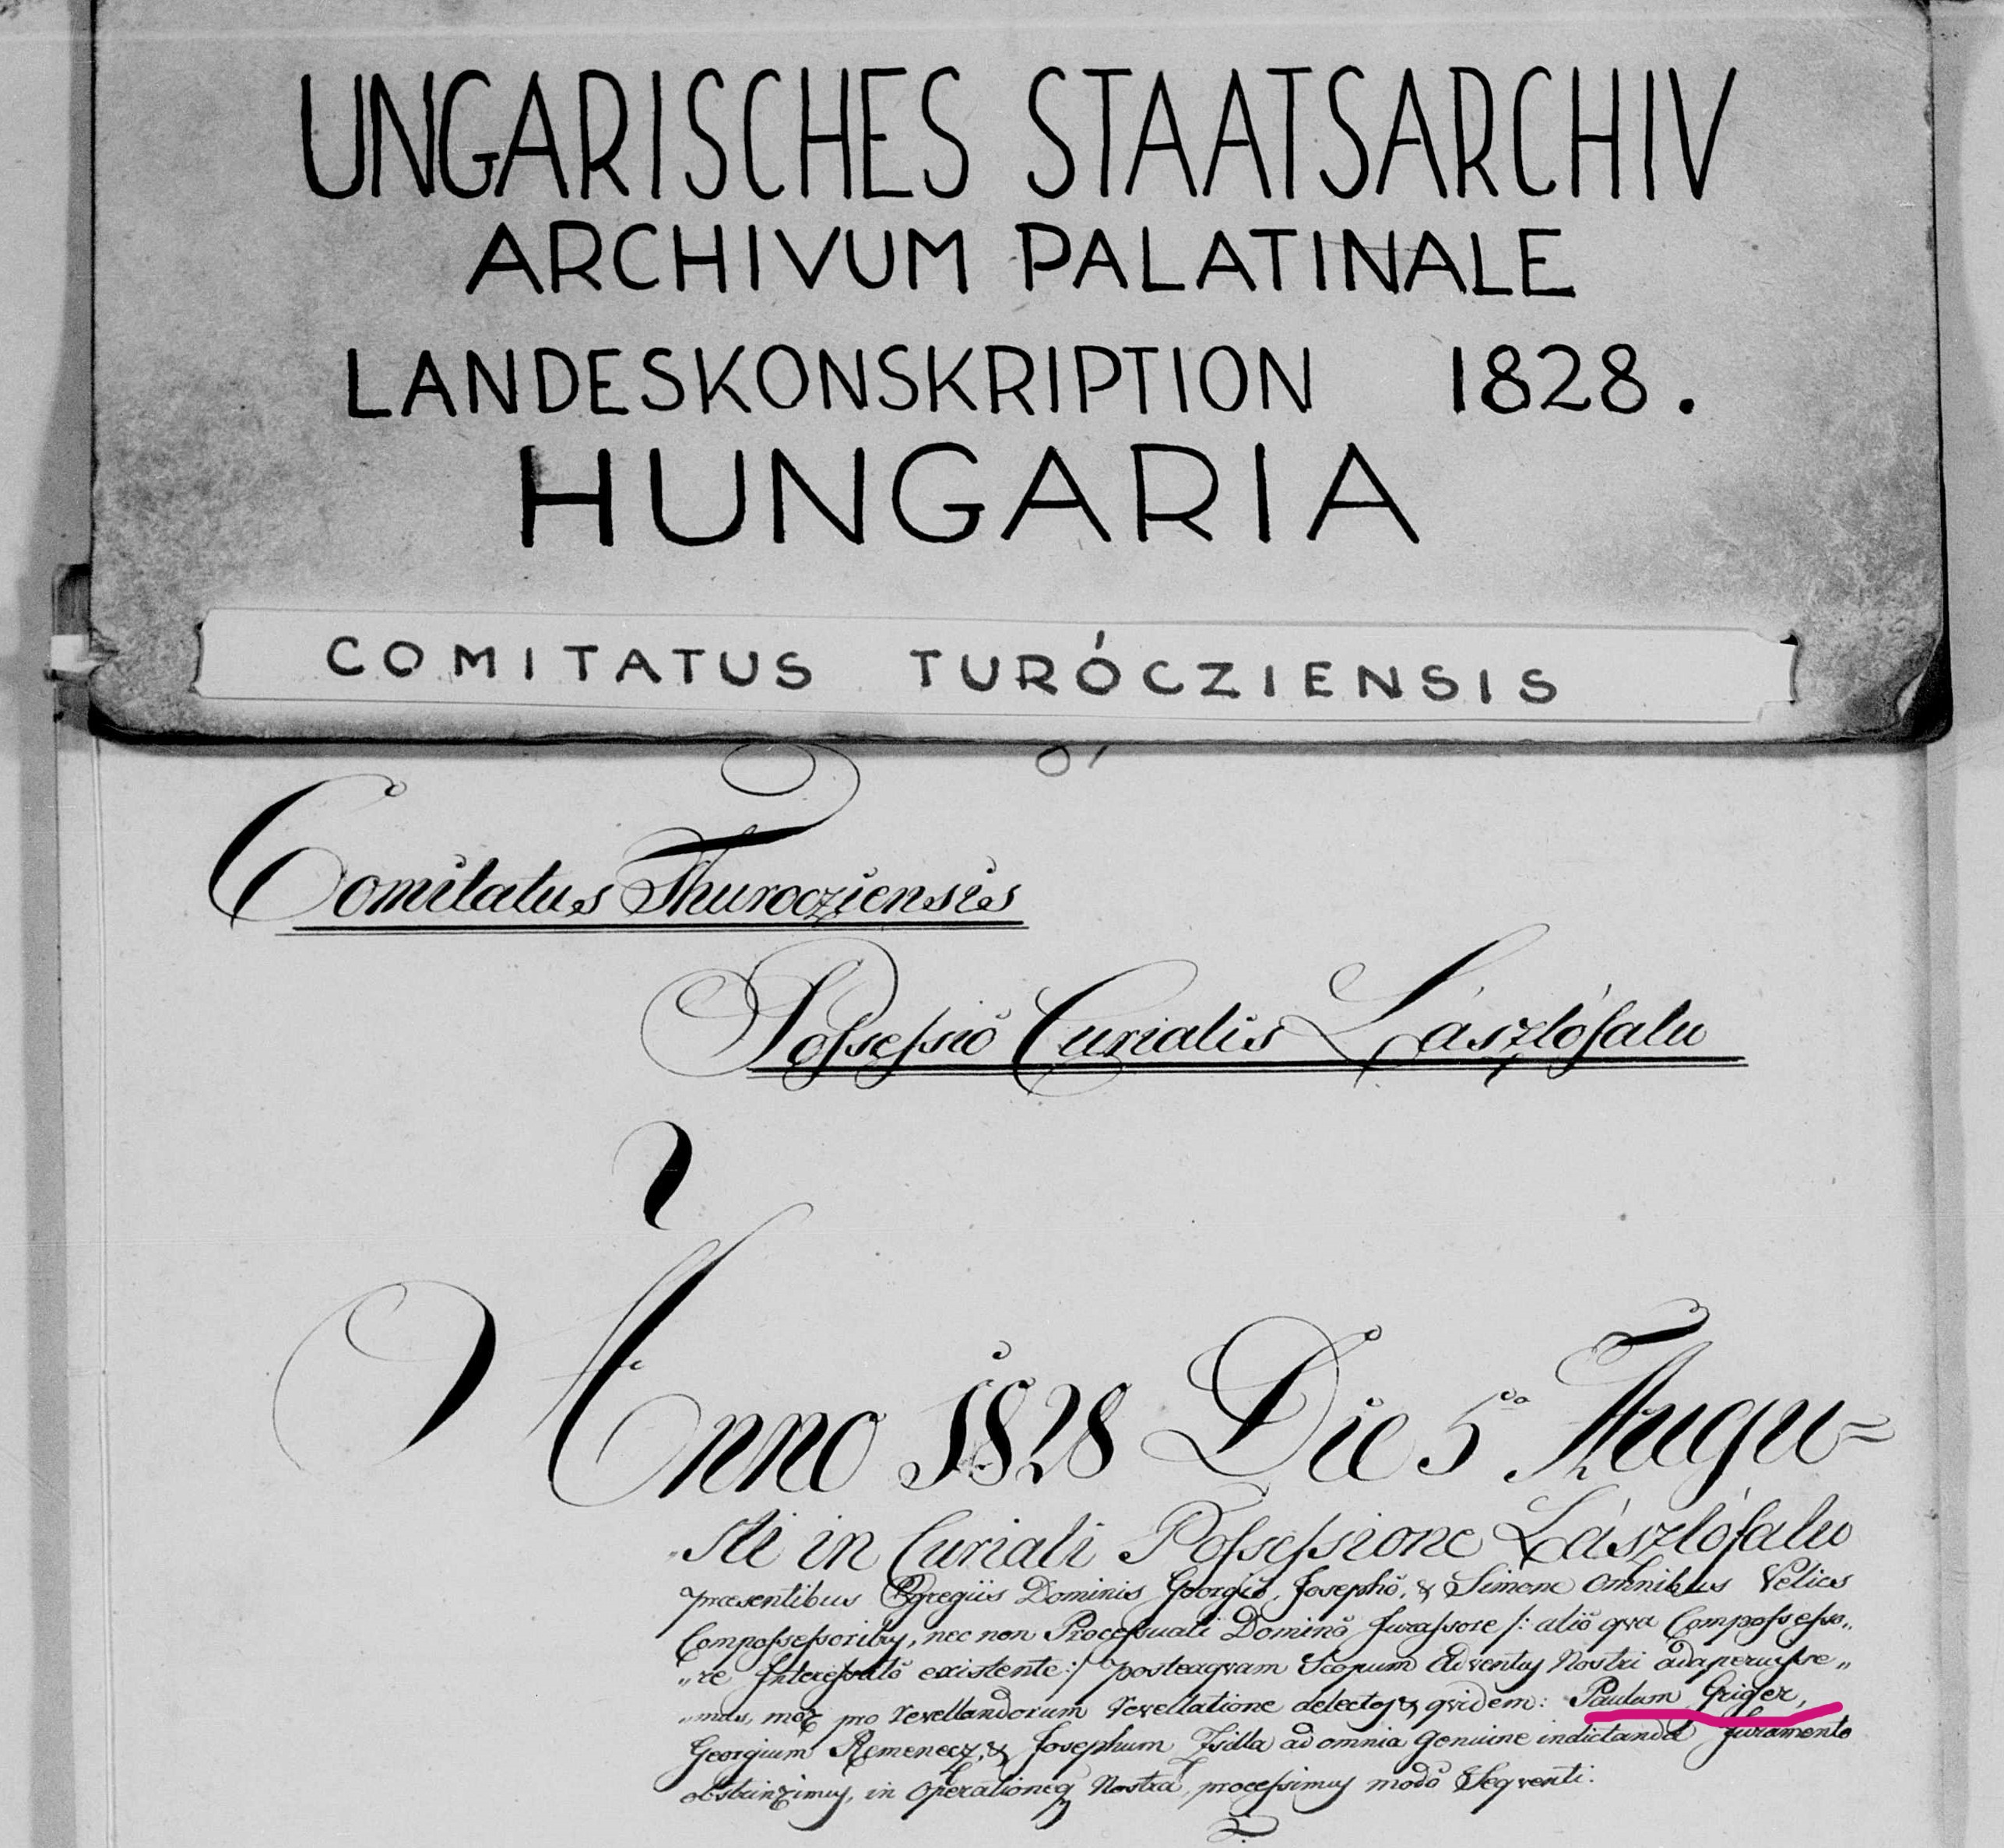 UNGARISCHES STAATSARCHIV
ARCHIVUM PALATINALE
LANDESKONSKRIPTION 1828.
HUNGARIA
COMITATUS TURÓCZIENSIS
Comitatus Thurocziensis
Possessio Curialis Lászlófalu
Anno 1828 Die 5ᵗᵃ Augu=
„sti in Curiali Possessione Lászlófalu
praesentibus Egregiis Dominis Georgiô, Josephô, & Simone omnibus Velics
Compossessoribus, nec non Processuali Dominô Jurassore /: aliô qva Compossesso„
„re Interessatô existente :/ posteaqvam Scopum Adventus Nostri adaperuisse„
„mus, mox pro revellandorum revellatione delectos & qvidem: Paulum Griger,
Georgium Remenecz, & Josephum Zsilla ad omnia genuine indictanda Juramento
obstrinximus, in Operationeq Nostra processimus modô Seqventi: